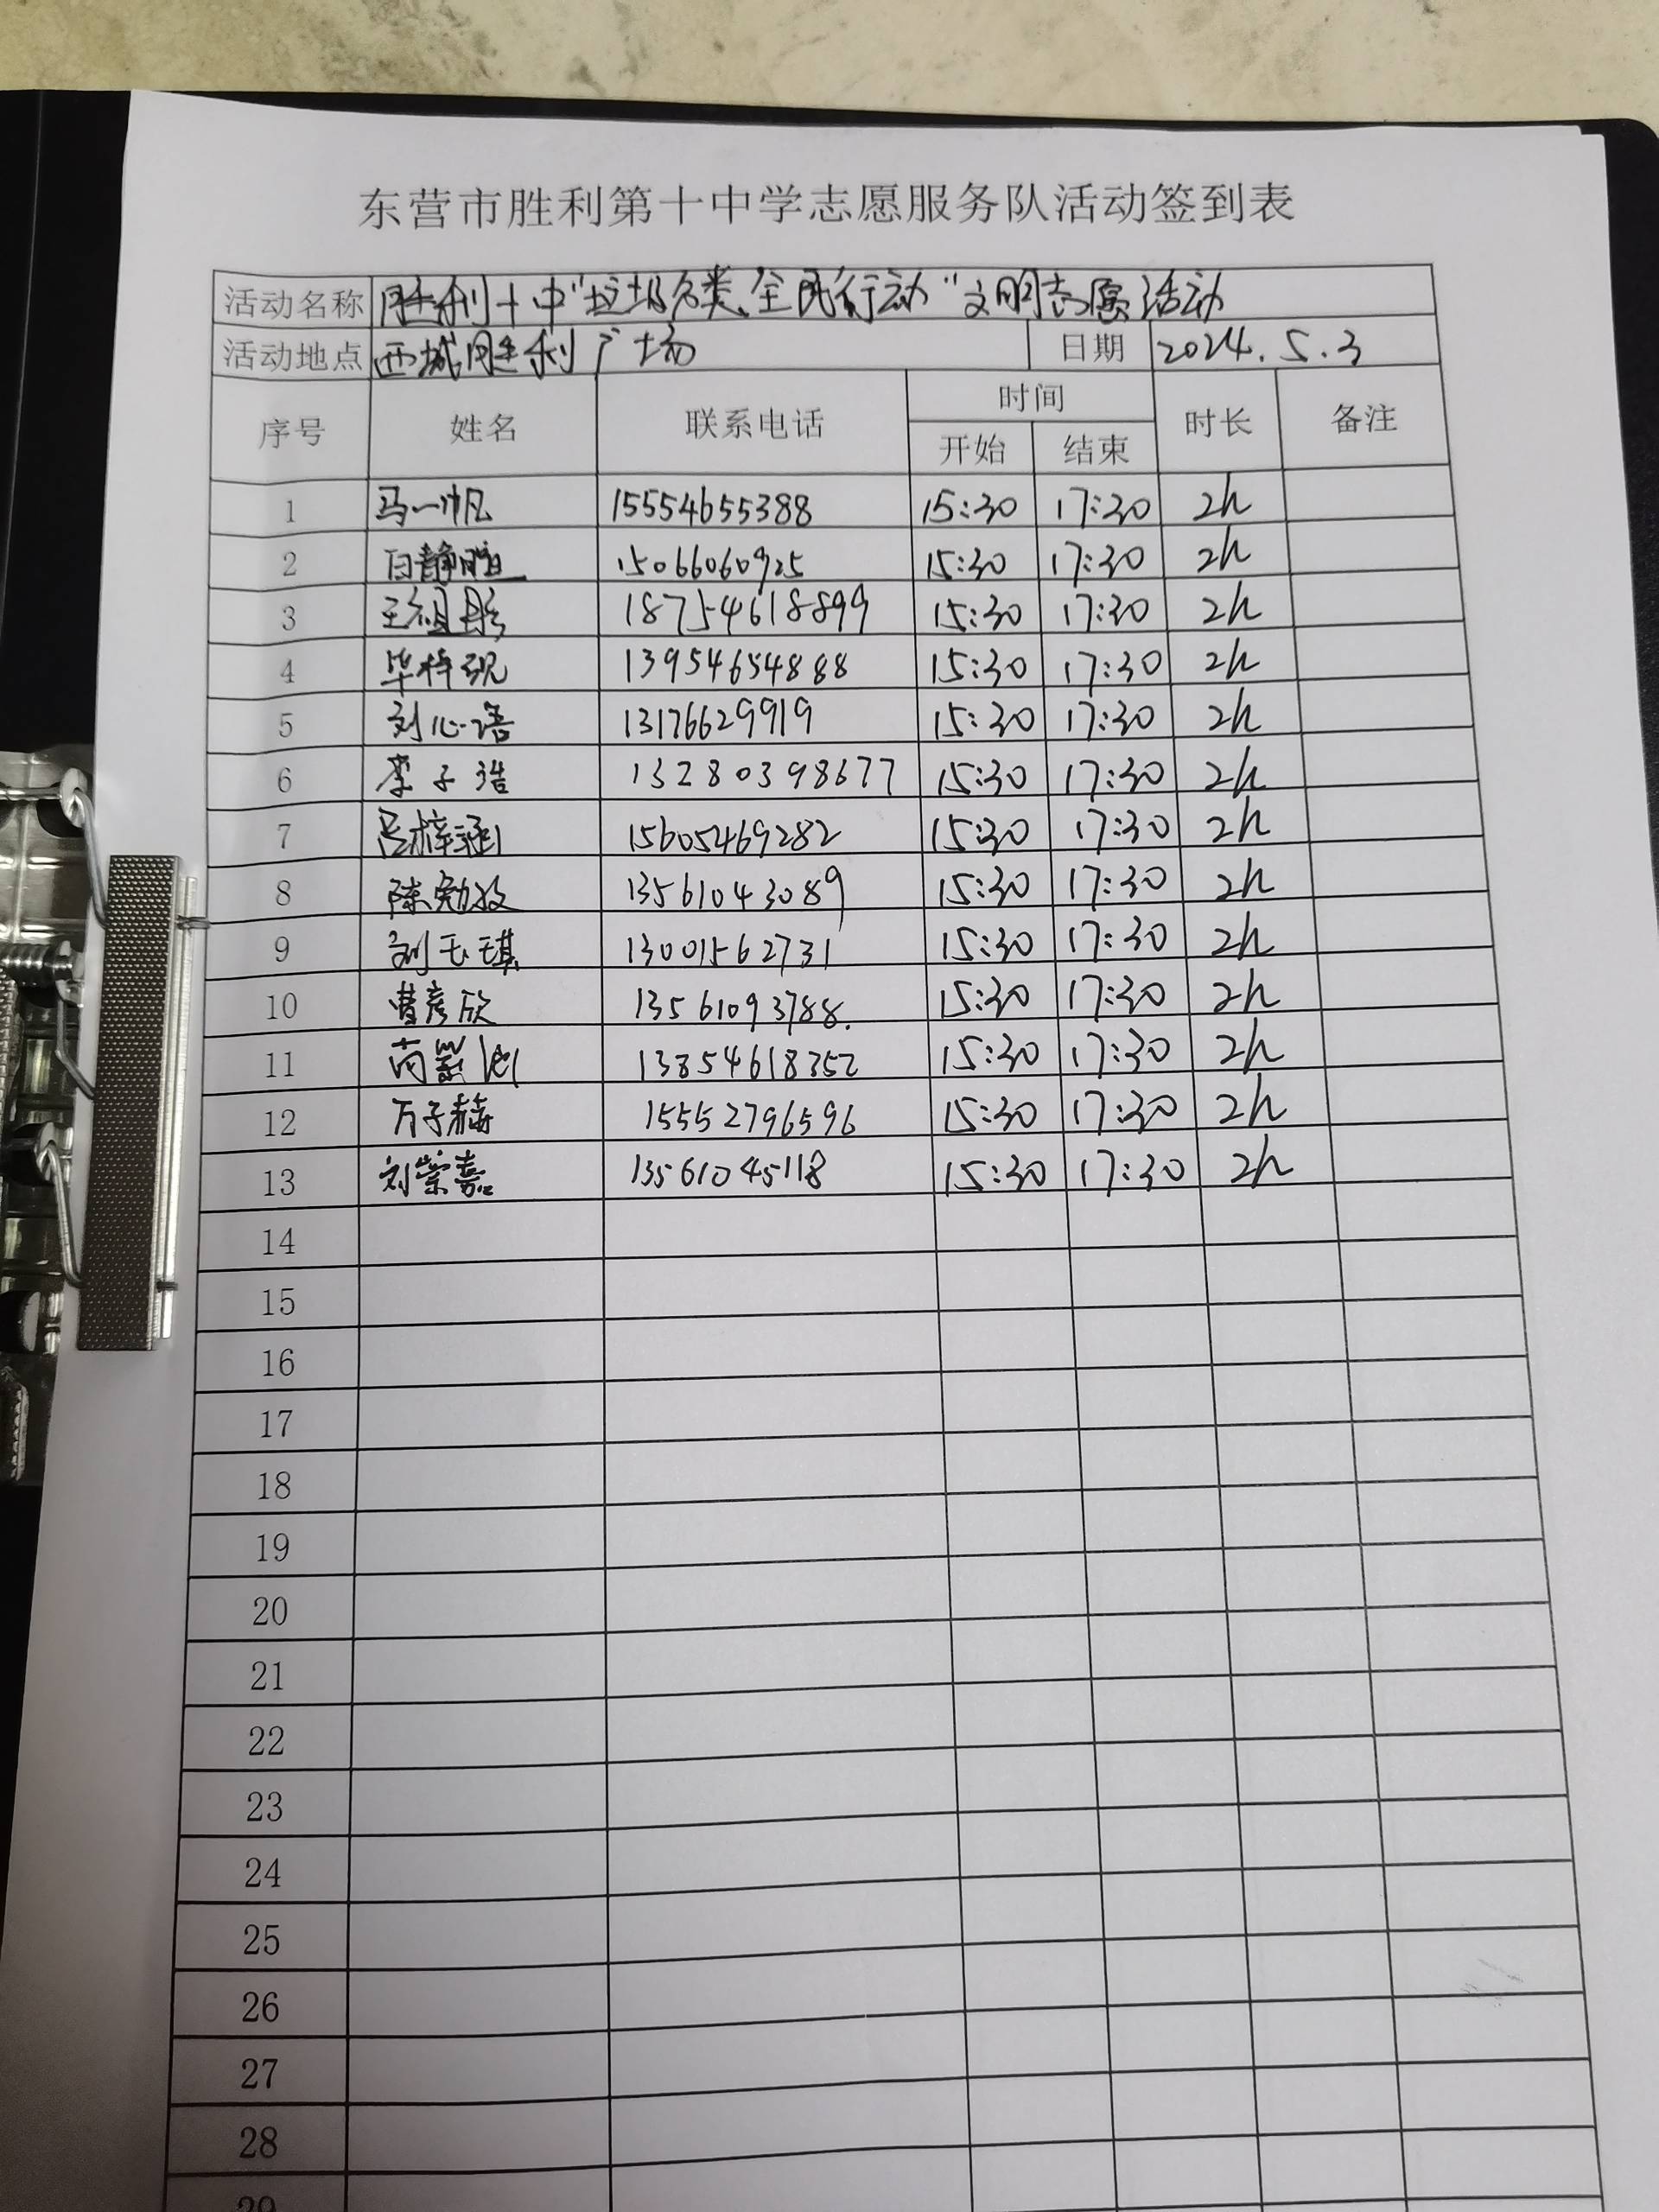 东营市胜利第十中学志愿服务队活动签到表
活动名称 胜利十中"垃圾分类、全民行动"文明志愿活动
活动地点 西城胜利广场 日期 2024.5.3
序号 姓名 联系电话 时间 时长 备注
开始 结束
1 马一帆 15554655388 15:30 17:30 2h
2 白静 15066060925 15:30 17:30 2h
3 王祖彤 18754618899 15:30 17:30 2h
4 毕梓砚 13954654888 15:30 17:30 2h
5 刘心语 13176629919 15:30 17:30 2h
6 李子浩 13280398677 15:30 17:30 2h
7 吕梓涵 15605469282 15:30 17:30 2h
8 陈勉孜 13561043089 15:30 17:30 2h
9 刘玉琪 13001562731 15:30 17:30 2h
10 曹彦欣 13561093788. 15:30 17:30 2h
11 13854618352 15:30 17:30 2h
12 万子赫 15552796596 15:30 17:30 2h
13 刘崇嘉 13561045118 15:30 17:30 2h
14
15
16
17
18
19
20
21
22
23
24
25
26
27
28
29